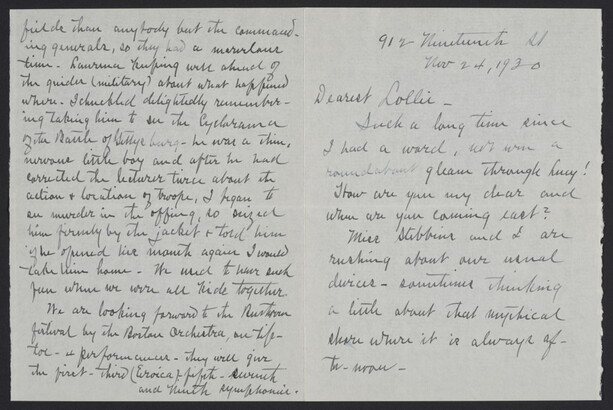 912 Nineteenth St
Nov 24, 1930
Dearest Lollie –
Such a long time since
I had a word, not even a
roundabout gleam through Lucy!
How are you my dear and
when are you coming east?
Miss Stebbins and I are
rushing about our usual
devices – sometimes thinking
a little about that mythical
shore where it is always af-
ter-noon –
fields than anybody but the command-
ing generals, so they had a marvelous
time – Lawrence keeping well ahead of
the guides (military) about what happened
where. I chuckled delightedly remember-
ing taking him to see the Cyclorama
of the Battle of Gettysburg – he was a thin,
nervous little boy and after he had
corrected the lecturer twice about the
action & location of troops, I began to
see murder in the offing, so seized
him firmly by the jacket & told him
if he opened his mouth again I would
take him home – We used to have such
fun when we were all kids together.
We are looking forward to the Beethoven
festival by the Boston Orchestra, on tip-
toe – performances – they will give
the first – third (Eroica) – fifth – seventh
and Ninth symphonies.